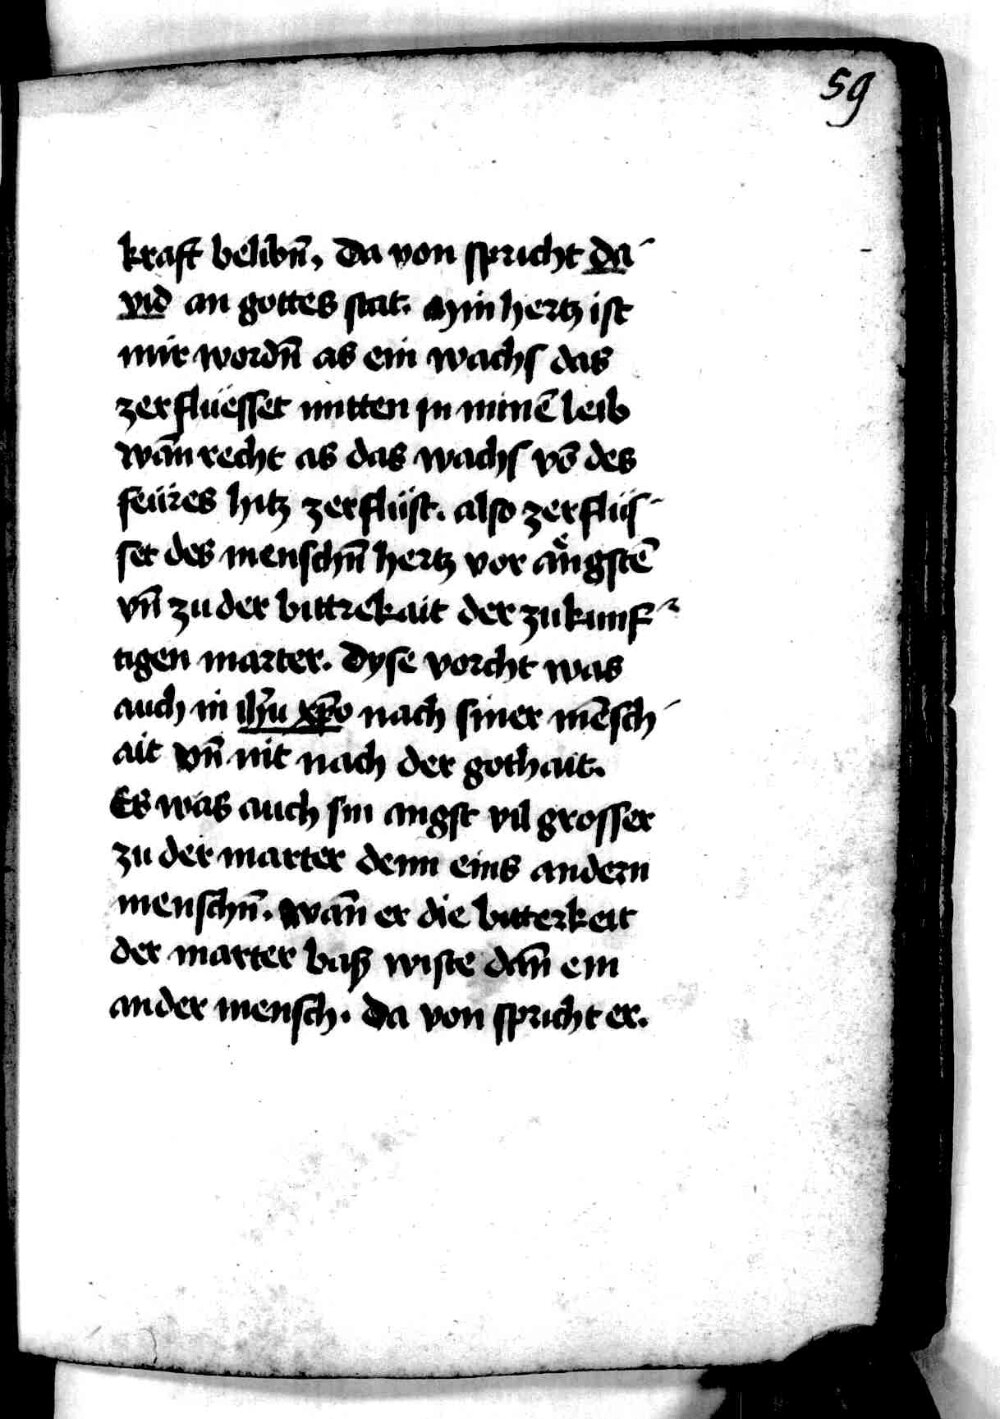 59
kraft belibn̄, Da von spricht da-
vid an gottes stat. Min hertz ist
mir wordn̄ as ein wachs das
zerflüesset mitten jn minē leib
wān recht as das wachs vō des
feüres hitz zerflüst. also zerflüs-
set des menschn̄ hertz vor ängstē
vn̄ zu der bittrekait der zukunf-
tigen marter. Dyse vorcht was
auch in ih̄u xp̄o nach siner mēsch-
ait vn̄ nit nach der gothait.
Es was auch sin angst vil grosser
zu der marter denn eins andern
menschn̄. Wān er die bitterkeit
der marter baß wiste dān ein
ander mensch. Da von spricht er.